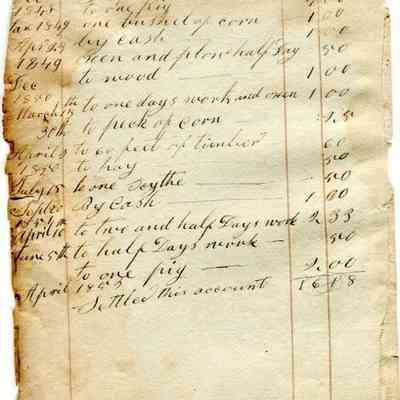 1848 to one pig 2.00
Jan 1849 one bushel of corn 1 00
April 29 by cash 1 00
1849 oxen and plow half Day 50
Dec to wood 1 00
1850
March 15th to one days work and oxen 1 00
30th to peck of corn .25
April 9 to 60 feet of timber 60
1850 to hay 50
July 15 to one Scythe 50
Sept 20 By Cash 1 00
April 10 to two and half Days work 2.33
June 5th to half Days work 50
to one pig 2.00
April 1852 16 18
Settled this account